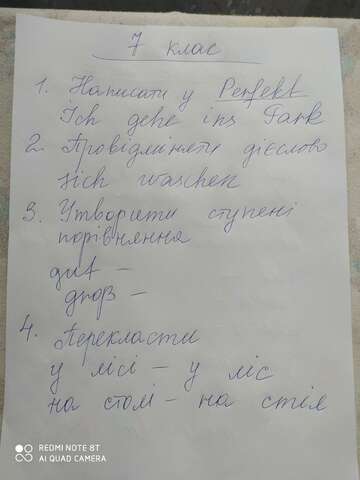 7 клас
1. Написати у Perfekt
Ich gehe ins Park
2. Провідміняти дієслово
sich waschen
3. Утворити ступені
порівняння
gut –
groß –
4. Перекласти
у лісі – у ліс
на столі – на стіл
REDMI NOTE 8T
AI QUAD CAMERA